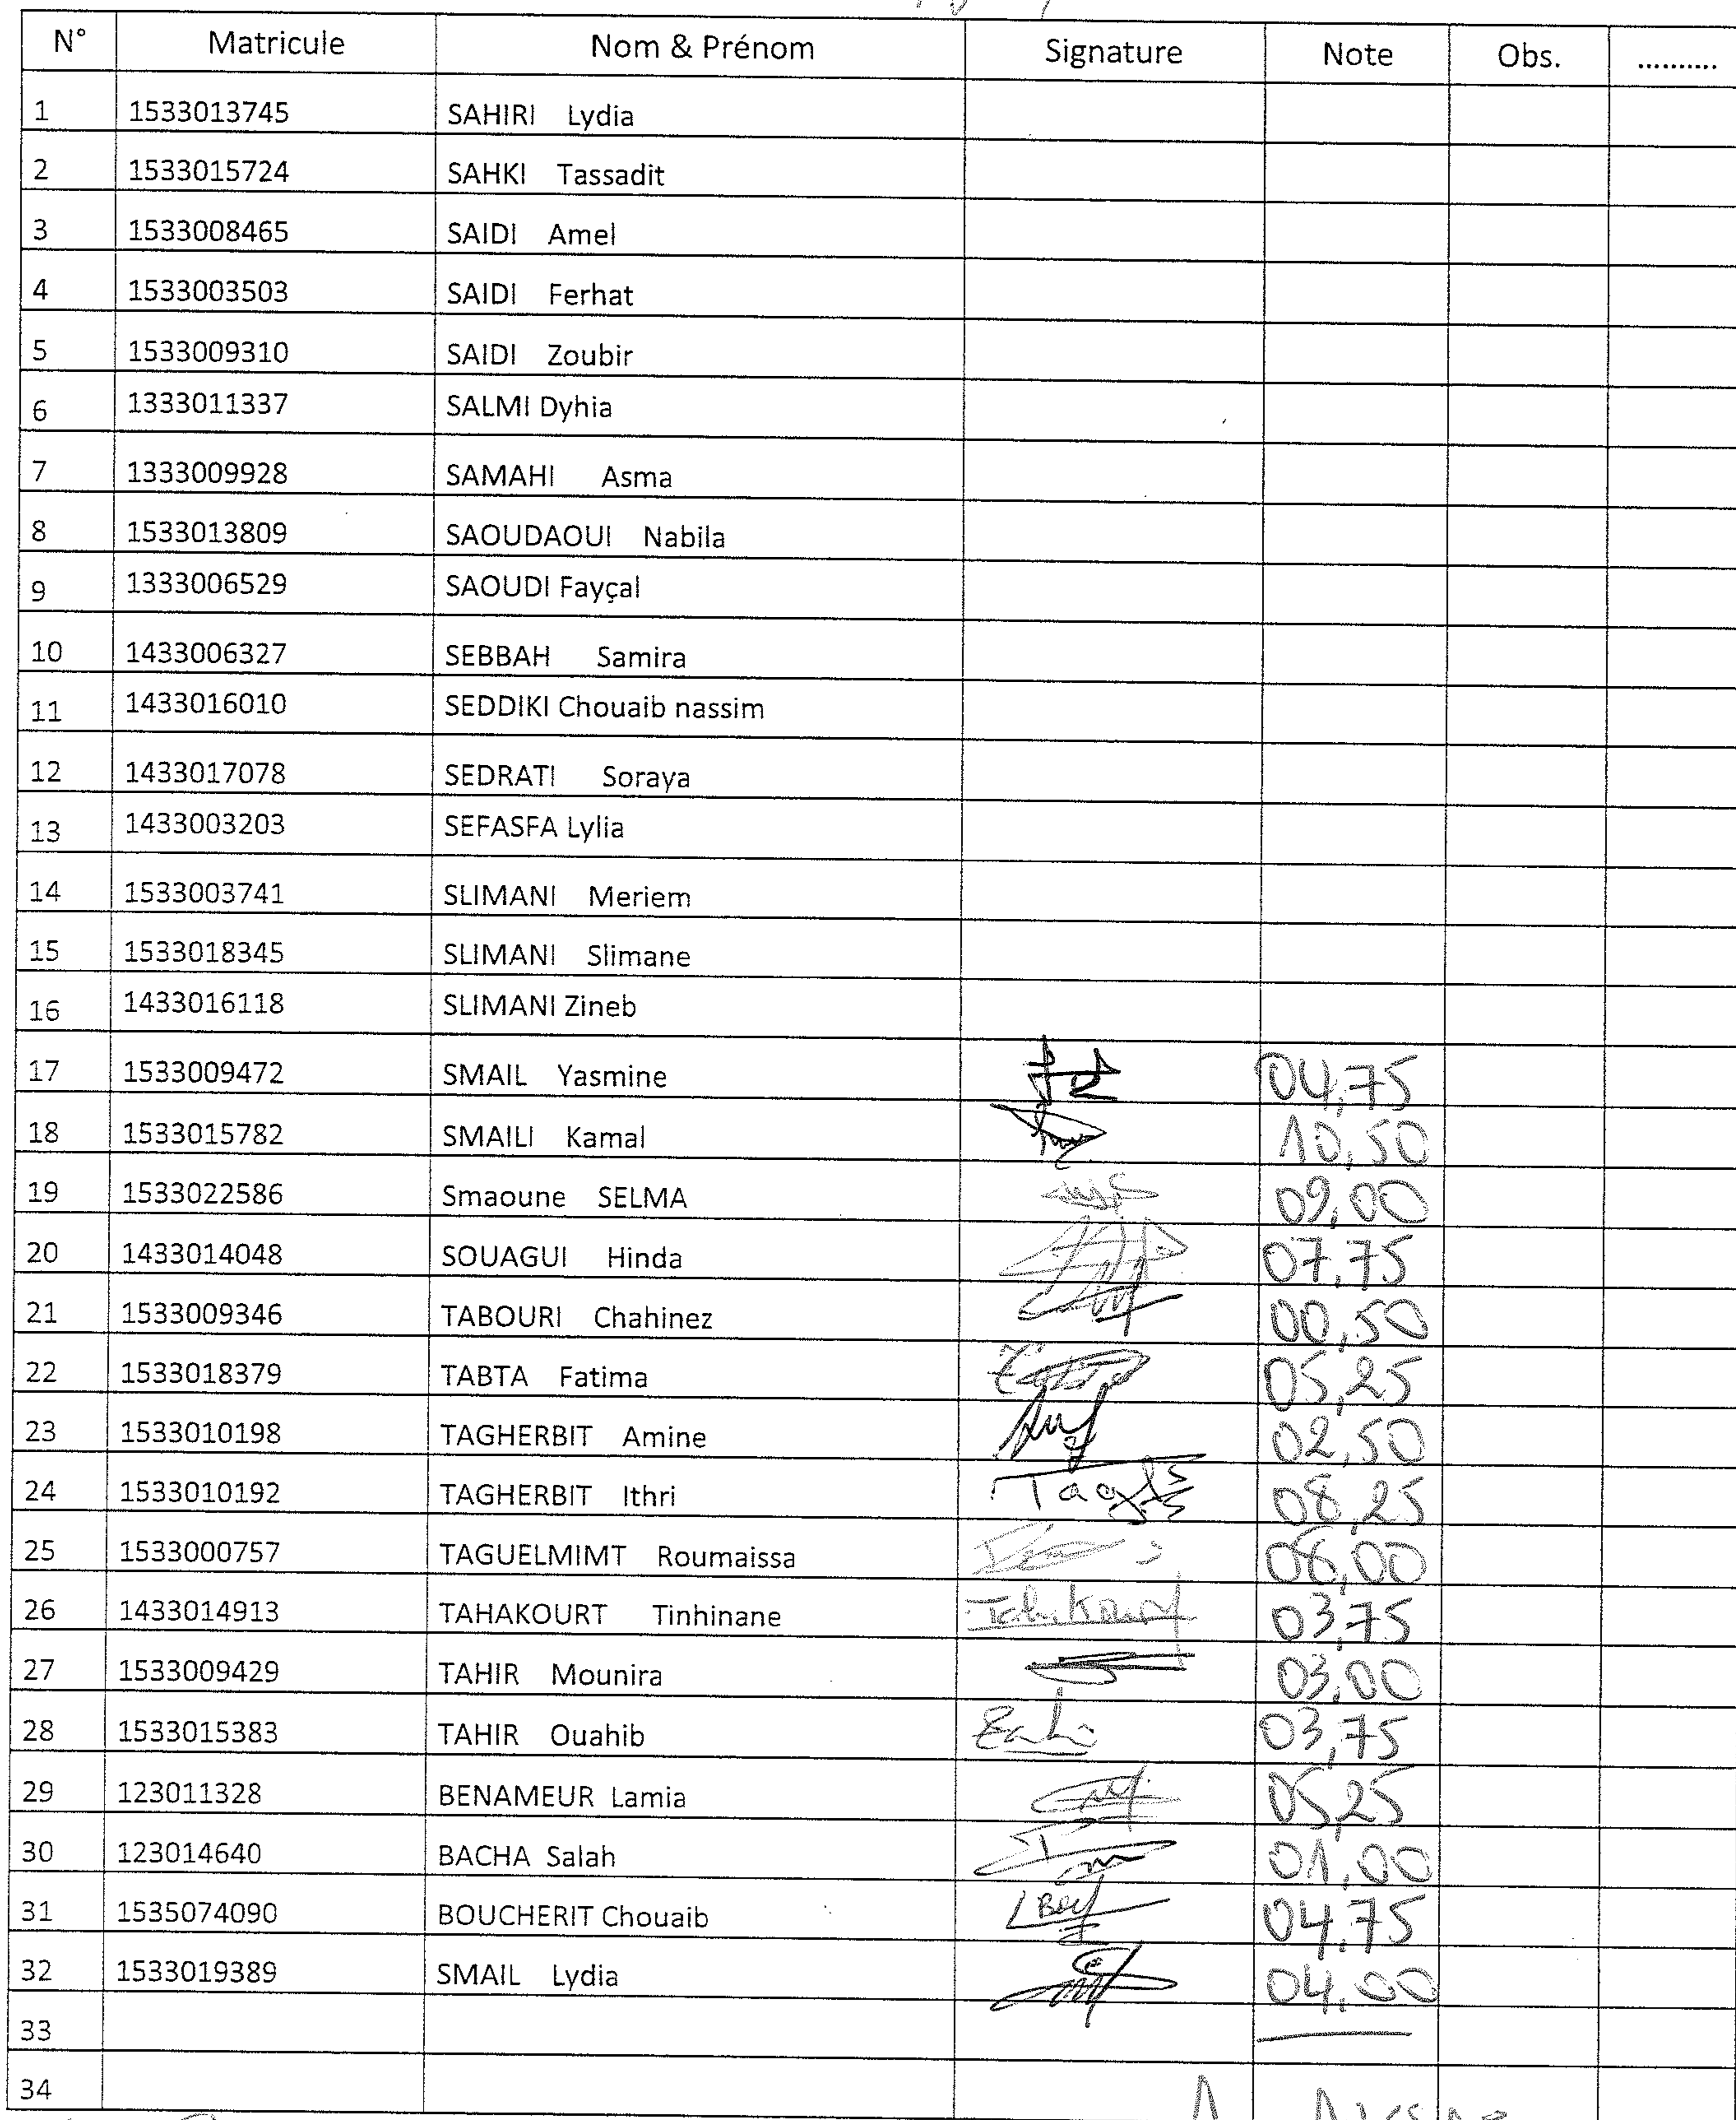 N° Matricule Nom & Prénom Signature Note Obs. ..........
1 1533013745 SAHIRI Lydia
2 1533015724 SAHKI Tassadit
3 1533008465 SAIDI Amel
4 1533003503 SAIDI Ferhat
5 1533009310 SAIDI Zoubir
6 1333011337 SALMI Dyhia
7 1333009928 SAMAHI Asma
8 1533013809 SAOUDAOUI Nabila
9 1333006529 SAOUDI Fayçal
10 1433006327 SEBBAH Samira
11 1433016010 SEDDIKI Chouaib nassim
12 1433017078 SEDRATI Soraya
13 1433003203 SEFASFA Lylia
14 1533003741 SLIMANI Meriem
15 1533018345 SLIMANI Slimane
16 1433016118 SLIMANI Zineb
17 1533009472 SMAIL Yasmine 04,75
18 1533015782 SMAILI Kamal 10,50
19 1533022586 Smaoune SELMA 09,00
20 1433014048 SOUAGUI Hinda 07,75
21 1533009346 TABOURI Chahinez 00,50
22 1533018379 TABTA Fatima 05,25
23 1533010198 TAGHERBIT Amine 02,50
24 1533010192 TAGHERBIT Ithri 08,25
25 1533000757 TAGUELMIMT Roumaissa
26 1433014913 TAHAKOURT Tinhinane 03,75
27 1533009429 TAHIR Mounira 03,00
28 1533015383 TAHIR Ouahib 03,75
29 123011328 BENAMEUR Lamia 05,25
30 123014640 BACHA Salah 01,00
31 1535074090 BOUCHERIT Chouaib 04,75
32 1533019389 SMAIL Lydia 04,00
33
34